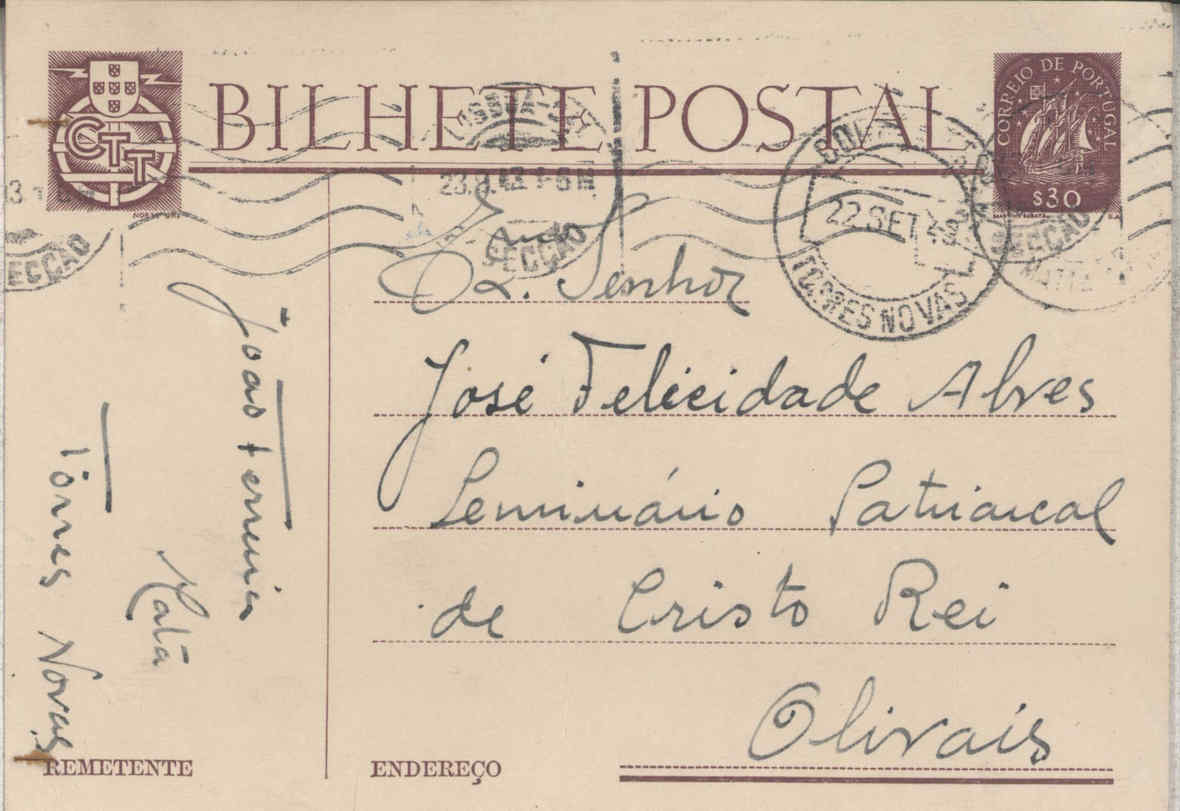 BILHETE POSTAL
CTT
CORREIO DE PORTUGAL
$30
22.SET.43
TORRES NOVAS
23. 43
SECÇÃO
SECÇÃO
ECÇÃO
Senhor
José Felicidade Alves
Seminário Patriarcal
de Cristo Rei
Olivais
João Ferreira
Matã
Tôrres Novas
REMETENTE
ENDEREÇO